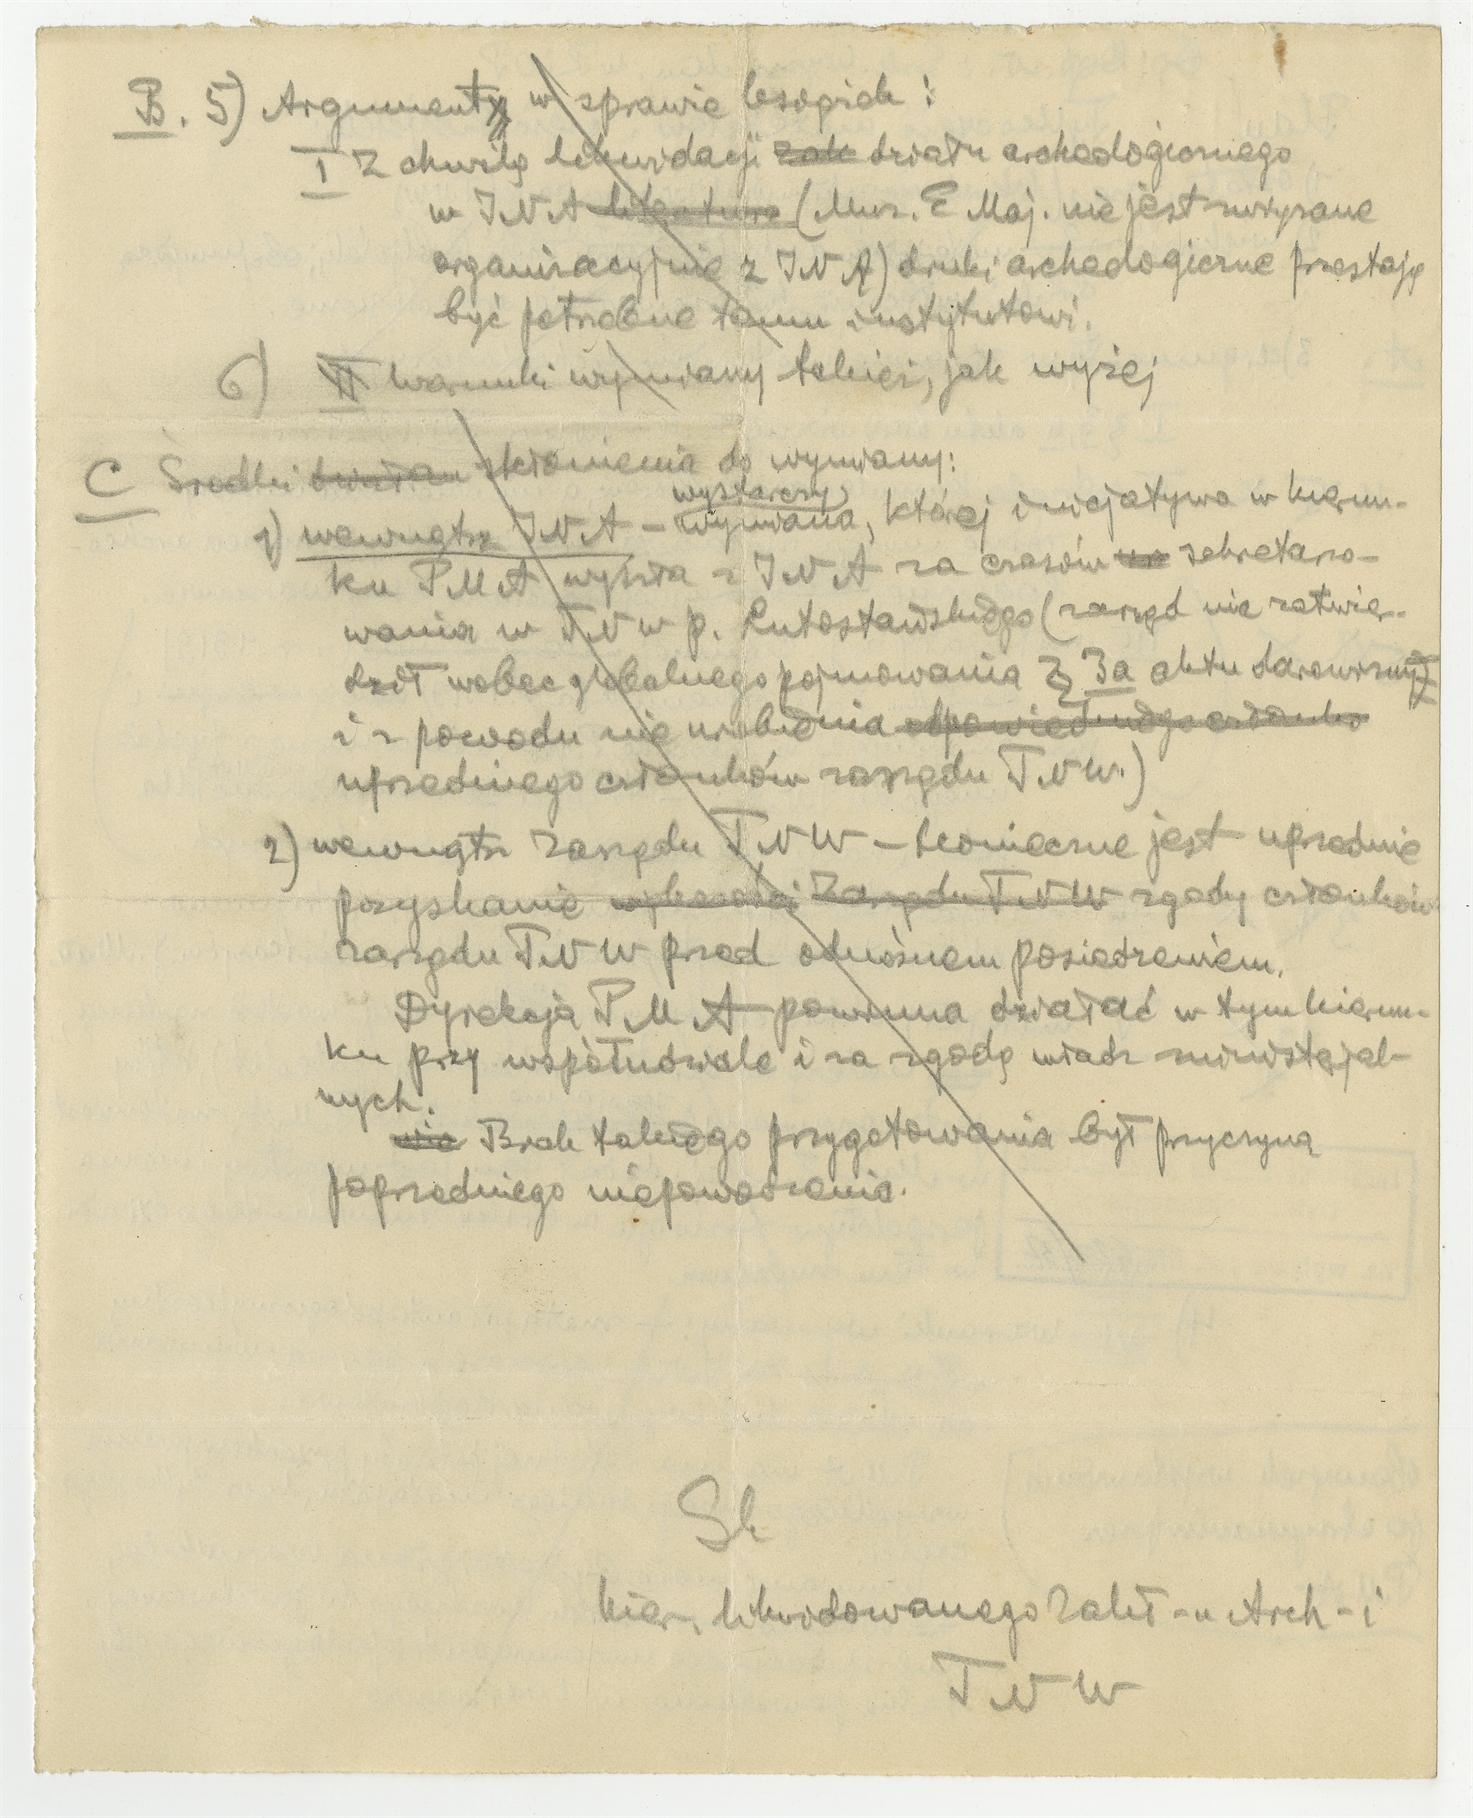 B. 5) Argumenty w sprawie książek:
I Z chwilą likwidacji ~~zak~~ działu archeologicznego
w INA ~~literatura~~ (Muz. E Maj. nie jest związane
organizacyjnie z INA) druki archeologiczne przestają
być potrzebne temu instytutowi.
6) II Warunki wymiany takież, jak wyżej
C Środki skłonienia do wymiany:
wystarczy
1) wewnątrz INA – wymiana, której inicjatywa w kierun-
ku PMA wyszła z INA za czasów sekretarzo-
wania w TNW p. Lutosławskiego (zarząd nie zatwier-
dził wobec globalnego pojmowania § 3a aktu darowizny
i z powodu nie urobienia ~~odpowiedniego członka~~
uprzedniego członków zarządu TNW.)
2) wewnątrz Zarządu TNW – konieczne jest uprzednie
pozyskanie ~~Zarządu TNW~~ zgody członków
zarządu TNW przed odnośnem posiedzeniem.
Dyrekcja PMA powinna działać w tym kierun-
ku przy współudziale i za zgodą władz ministerjal-
nych.
~~nie~~ Brak takiego przygotowania był przyczyną
poprzedniego niepowodzenia.
kier. likwidowanego Zakł-u Arch-i
TNW